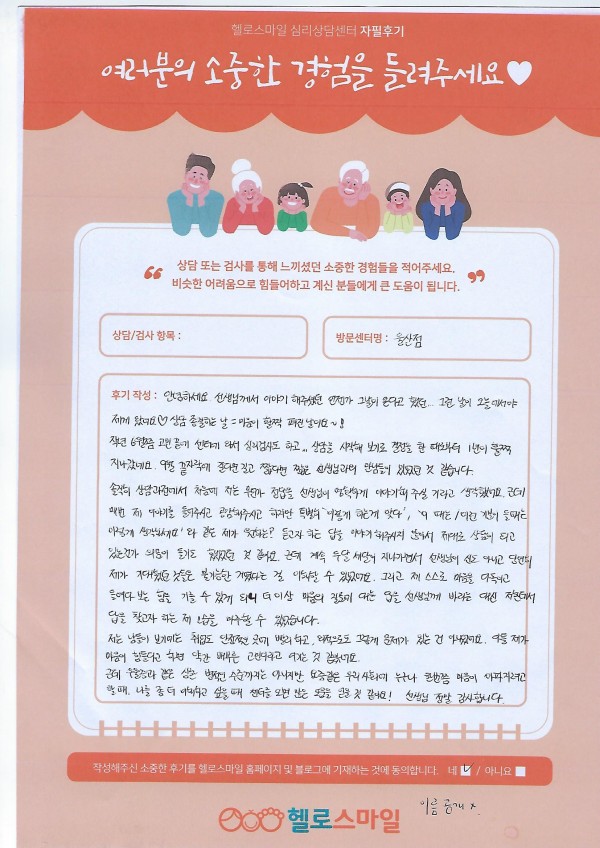 헬로스마일 심리상담센터 자필후기
여러분의 소중한 경험을 들려주세요♥
상담 또는 검사를 통해 느끼셨던 소중한 경험들을 적어주세요.
비슷한 어려움으로 힘들어하고 계신 분들에게 큰 도움이 됩니다.
상담/검사 항목 :
방문센터명 : 울산점
후기 작성 : 안녕하세요 선생님께서 이야기 해주셨던 언젠가 그날이 온다고 했던... 그런 날이 오늘에서야
제게 왔네요♡ 상담 종결하는 날 = 마음이 활짝 펴진 날이요~!
작년 6월쯤 고민 끝에 센터에 와서 심리검사도 하고,, 상담을 시작해 보기로 결정을 한 때로부터 1년이 훌쩍
지나갔네요. 6월 끝자락에 길다면 길고 짧다면 짧은 선생님과의 만남들이 있었던 것 같습니다.
솔직히 상담과정에서 처음에 저는 뭔가 정답을 선생님이 명확하게 이야기해 주실 거라고 생각했었어요. 근데
매번 제 이야기를 들어주시고 공감해주시고 하지만 특별히 '이렇게 하는게 맞다', '이 때는 / 이런 게 들 때는
이렇게 생각하세요' 와 같은 제가 원하는? 듣고자 하는 답을 이야기해주시지 않아서 제대로 상담이 되고
있는건가 의문이 들기도 했었던 것 같아요. 근데 계속 두달 세달이 지나가면서 선생님이 신도 아니고 당연히
제가 기대했던 것들은 불가능한 거였다는 걸 이해할 수 있었어요. 그리고 제 스스로 마음을 다독이고
들여다 보는 힘을 기를 수 있게 되니 더 이상 마음의 질문에 대한 답을 선생님께 바라는 대신 저한테서
답을 찾고자 하는 제 모습을 마주할 수 있었습니다.
저는 남들이 보기에는 취업도 안정적인 곳에 했다 하고, 외적으로도 그렇게 문제가 있는 건 아니었어요. 이들 제가
마음이 힘들다고 하면 약간 배부른 고민이라고 여기는 것 같았어요.
근데 우울증과 같은 심한 병적인 수준까지는 아니지만 요즘같은 우리 사회에 누구나 한번쯤 마음이 아파지려고
할 때, 나를 좀 더 이해하고 싶을 때 센터를 오면 많은 도움을 받을 것 같아요! 선생님 정말 감사합니다.
작성해주신 소중한 후기를 헬로스마일 홈페이지 및 블로그에 기재하는 것에 동의합니다. 네 ☑ / 아니요 ☐
이름 공개 x
헬로스마일